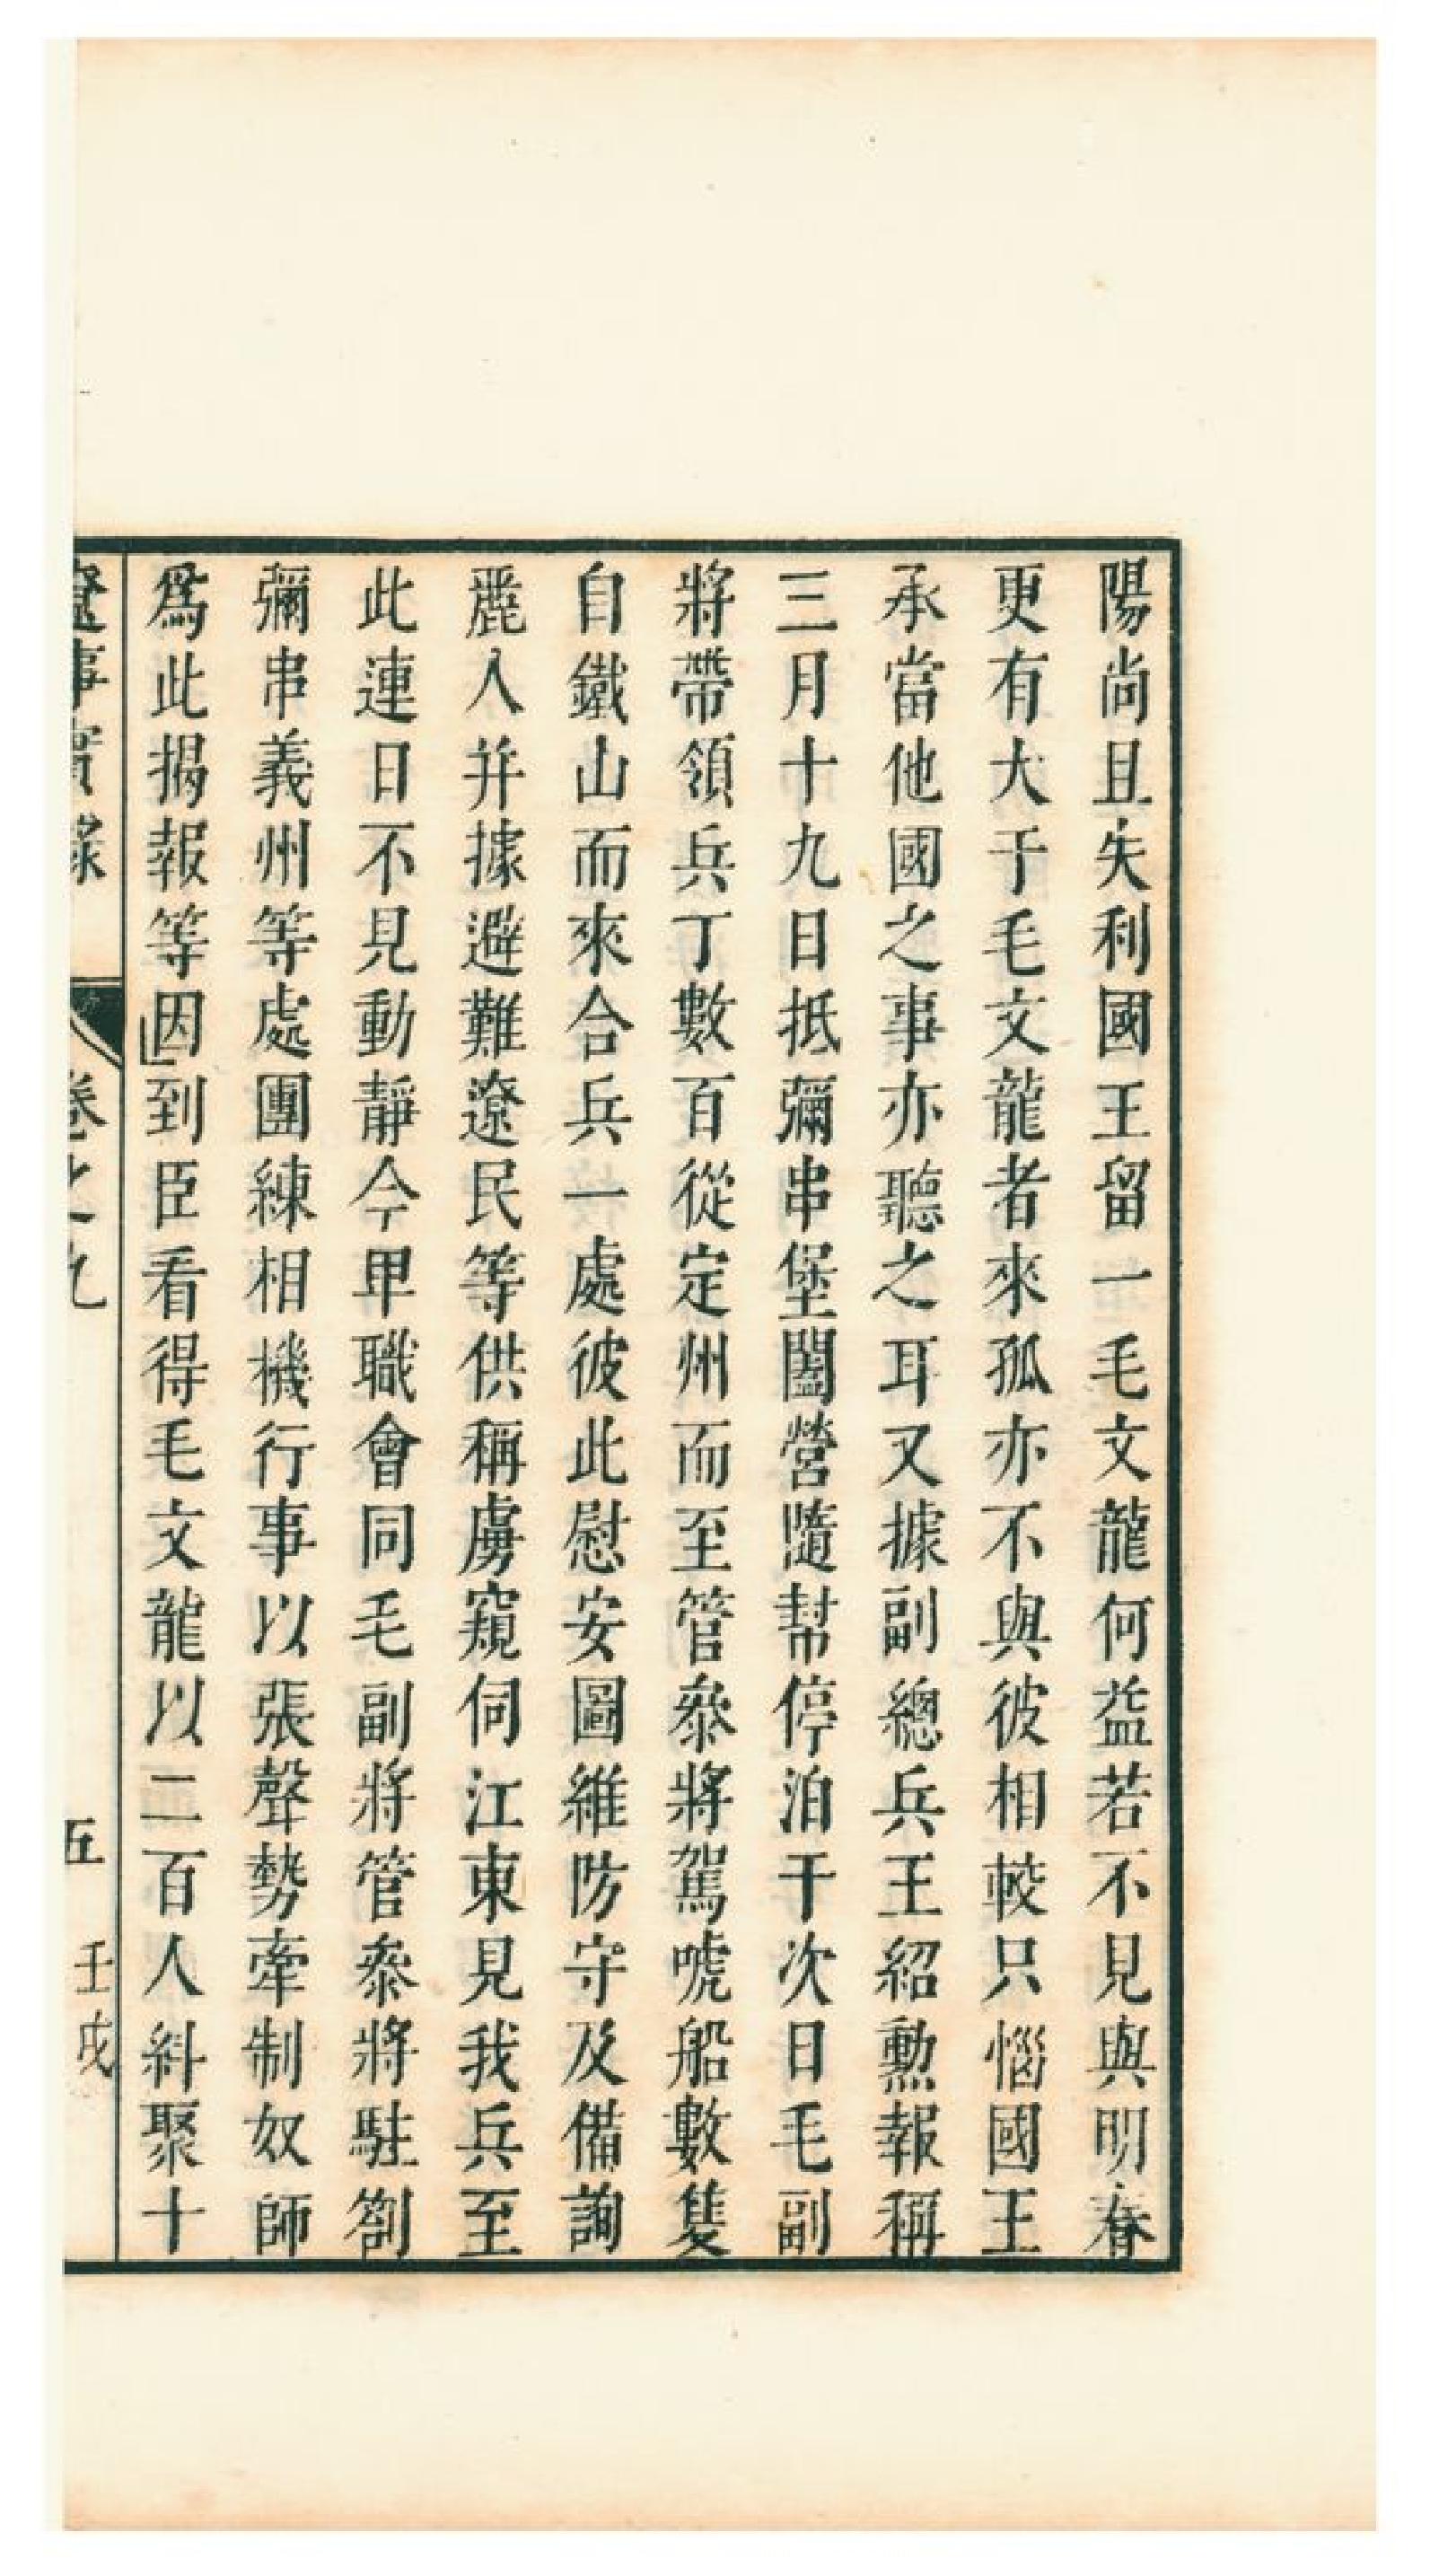 陽尚且失利國王留一毛文龍何益若不見與明春
更有大于毛文龍者來孤亦不與彼相較只惱國王
承當他國之事亦聽之耳又據副總兵王紹勲報稱
三月十九日抵彌串堡闔營隨幇停泊于次日毛副
將帶領兵丁數百從定州而至管叅將駕唬船數隻
自鐵山而來合兵一處彼此慰安圖維防守及備詢
麗人并據避難遼民等供稱虜窺伺江東見我兵至
此連日不見動靜今卑職會同毛副將管叅將駐劄
彌串義州等處團練相機行事以張聲勢牽制奴師
爲此揭報等因到臣看得毛文龍以二百人糾聚十
遼事實錄 卷之九 五 壬戌